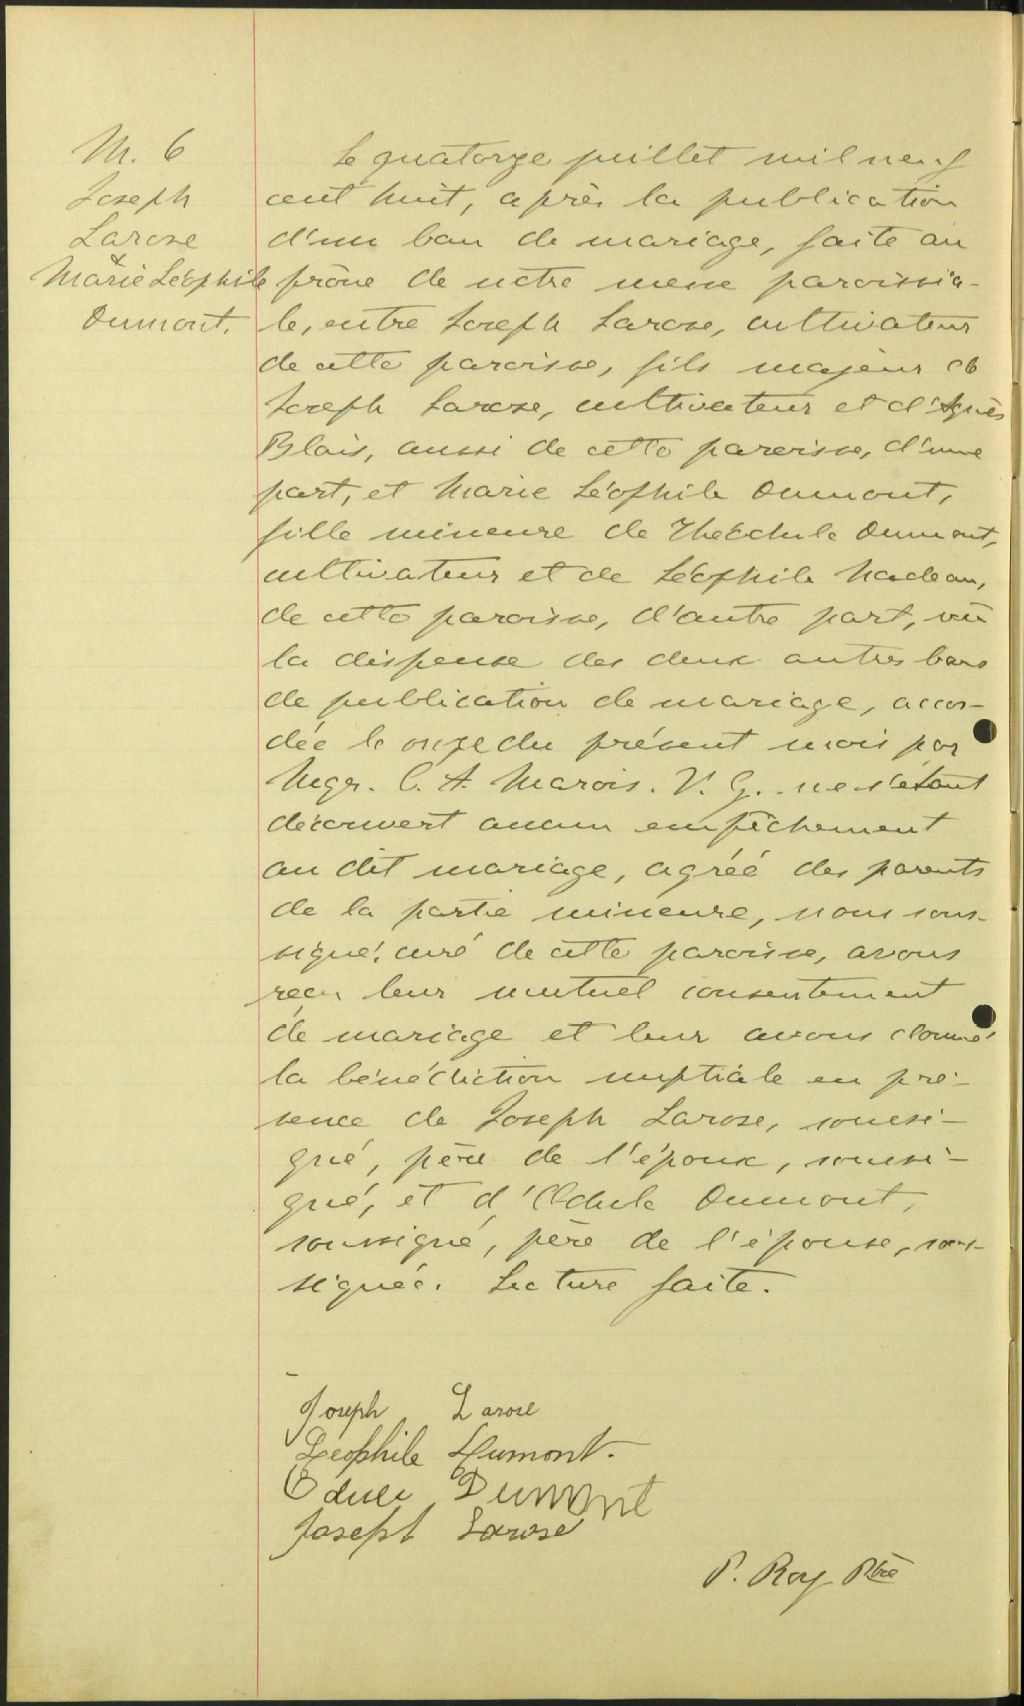 M. 6
Joseph
Larose
&
Marie Léophile
Dumont.
Le quatorze juillet mil neuf
cent huit, après la publication
d'un ban de mariage, faite au
prône de notre messe paroissia-
le, entre Joseph Larose, cultivateur
de cette paroisse, fils majeur de
Joseph Larose, cultivateur et d'Agnès
Blais, aussi de cette paroisse, d'une
part, et Marie Léophile Dumont,
fille mineure de Théodule Dumont,
cultivateur et de Léophile Nadeau,
de cette paroisse, d'autre part, vu
la dispense des deux autres bans
de publication de mariage, accor-
dée le onze du présent mois par
Mgr. C. A. Marois. V. G. ne s'étant
découvert aucun empêchement
au dit mariage, agréé des parents
de la partie mineure, nous sous-
signé, curé de cette paroisse, avons
reçu leur mutuel consentement
de mariage et leur avons donné
la bénédiction nuptiale en pré-
sence de Joseph Larose, soussi-
gné, père de l'époux, soussi-
gné, et d'Odule Dumont,
soussigné, père de l'épouse, sous-
signée. Lecture faite.
Joseph Larose
Léophile Dumont.
Odule Dumont
Joseph Larose
P. Roy Ptre